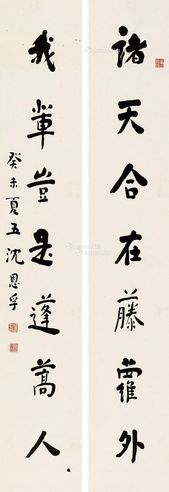 諸天合在藤蘿外
我輩豈是蓬蒿人
癸未夏五沈恩孚